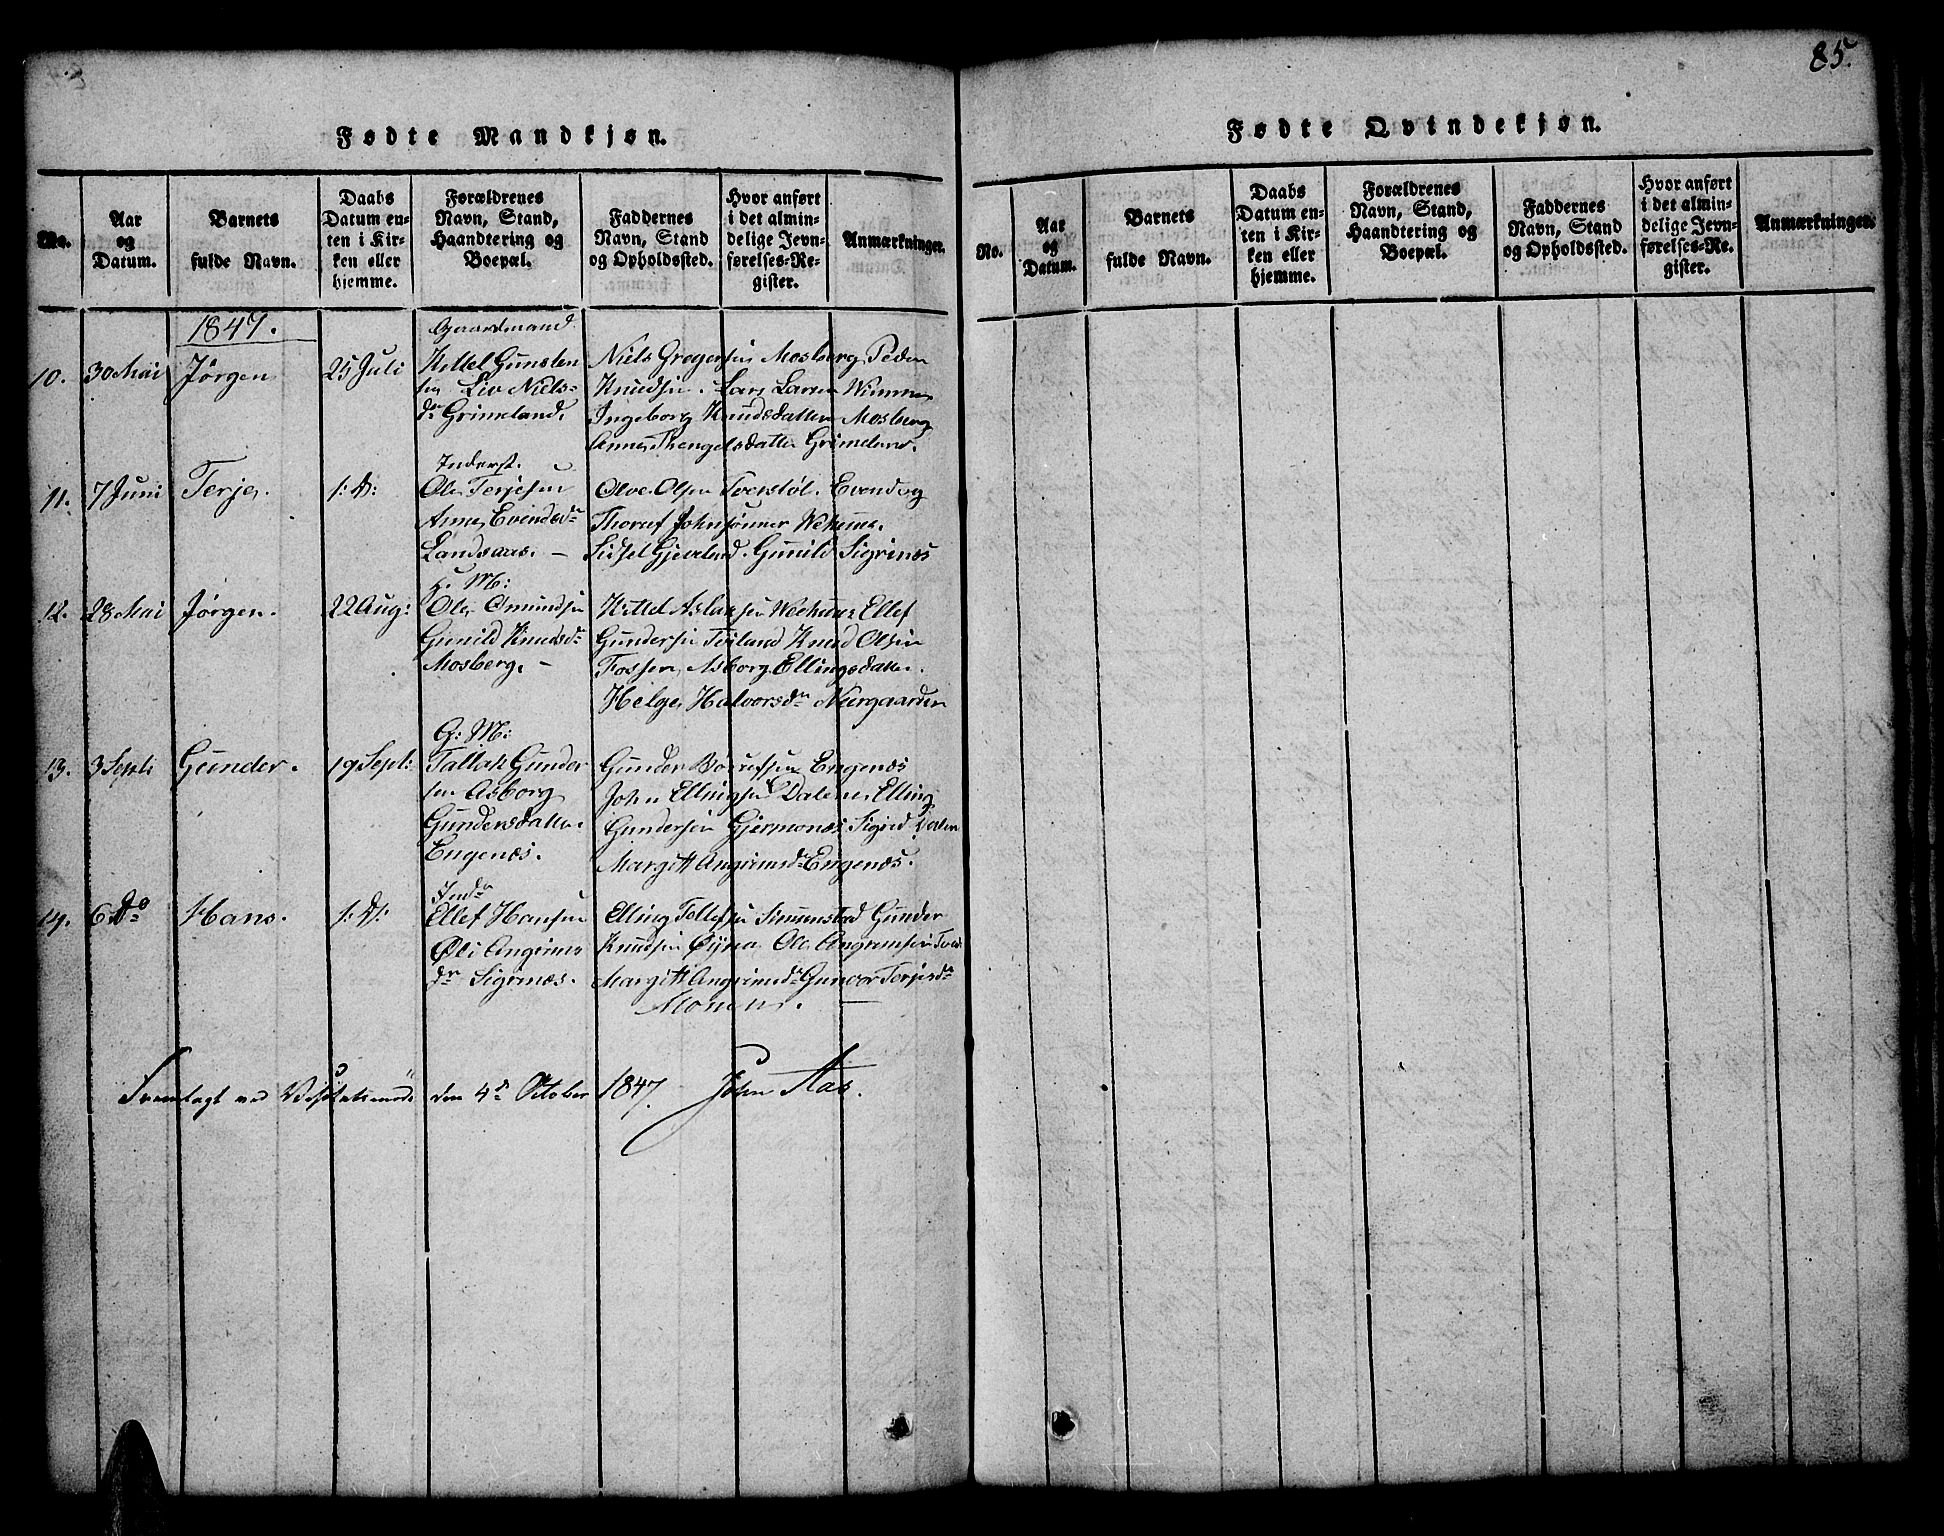 85.
Fødte Mandkjøn.
No.
Aar og Datum.
Barnets fulde Navn.
Daabs Datum enten i Kirken eller hjemme.
Forældrenes Navn, Stand, Haandtering og Boepæl.
Faddernes Navn, Stand og Opholdssted.
Hvor anført i det almindelige Jevnførelses-Register.
Anmærkninger.
1847.
10. 30 Mai Jørgen 25 Juli
Gaardmand
Kettel Gunsten
sen Liv Niels-
dr Grimeland.
Niels Gregersen Mosberg Peder
Knudsen. Lars Larsen Wimme
Ingeborg Knudsdatter Mosberg
Anne Thengelsdatter Grimeland.
11. 7 Juni Terje. 1: D:
Inderst.
Ole Terjesen
Anne Evendsdr
Landsaas. –
Olve Olsen Tverstøl. Evend og
Thoruf Johnsønner Wehuus.
Sidsel Gjeveland. Gunild Sigrinæs
12. 28 Mai Jørgen. 22 Aug:
H. M:
Ole Omundsen
Gunild Knudsdr
Mosberg. –
Kittel Aslaksen Wehuus Ellef
Gundersen Teiland Knud Olsen
Fossen, Asborg Ellingsdatter
Helge Halvorsdr Neergaarden
13. 3 Septb Gunder. 19 Sept:
G: M:
Tallak Gunder
sen Asborg
Gundersdatter.
Engenæs.
Gunder Engenæs
John Ellingsen Dalene, Elling
Gundersen Gjermonæs Sigrid Dalen
Margitt Angrimsdr Engenæs.
14. 6 Do Hans. 1: D:
Indr
Ellef Hansen
Øli Angrims
dr Sigrinæs.
Elling Tellefsen Simonstad Gunder
Knudsen Øyna Ole Angrimsen
Margitt Angrimsdr Gunvor Terjesdr
Monene. –
Fremlagt ved den 4de October 1847. John Aas.
Fødte Qvindekjøn.
No.
Aar og Datum.
Barnets fulde Navn.
Daabs Datum enten i Kirken eller hjemme.
Forældrenes Navn, Stand, Haandtering og Boepæl.
Faddernes Navn, Stand og Opholdssted.
Hvor anført i det almindelige Jevnførelses-Register.
Anmærkninger.